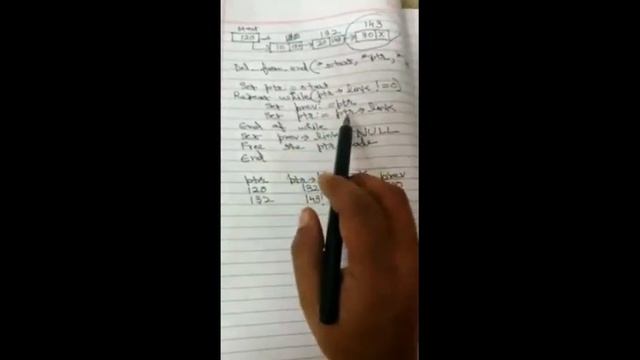 start
120
132
143
10
20
30 X
Del from end (*start, *ptr, *
Set ptr = start
Repeat while (ptr → link != 0)
Set prev := ptr
Set ptr := ptr → link
End of while
Set prev → link NULL
Free the ptr
End
ptr prev
120 132
132 143